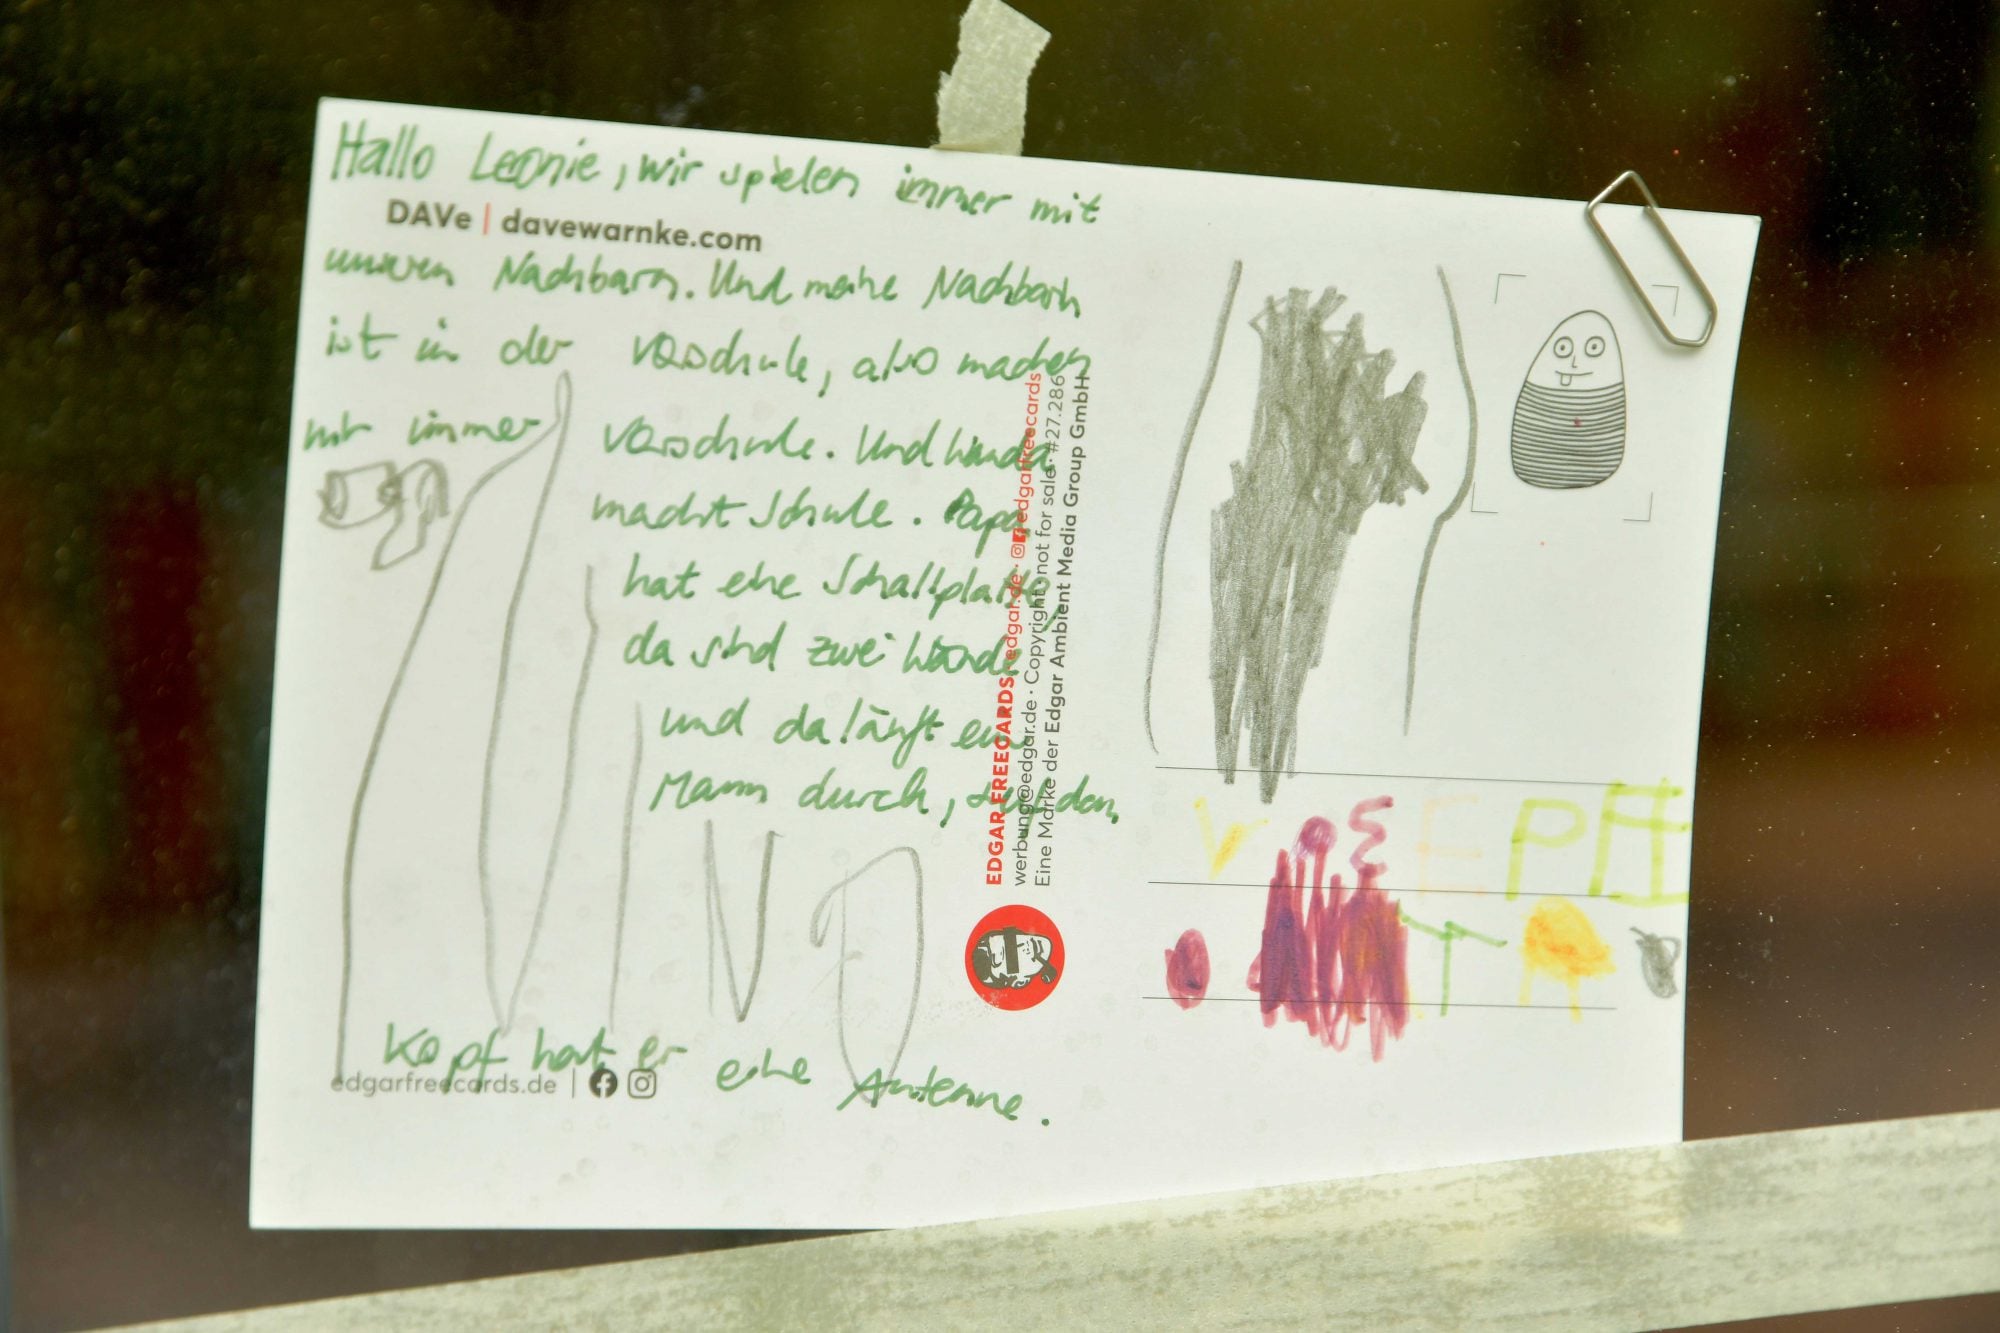 Hallo Leonie, wir spielen immer mit
DAVe | davewarnke.com
unseren Nachbarn. Und meine Nachbarin
ist in der Vorschule, also machen
wir immer Vorschule. Und
macht Schule. Papa
hat eine Schallplatte,
da sind zwei Hände
und da läuft ein
Mann durch, auf dem
Kopf hat er eine Antenne.
edgarfreecards.de |
EDGAR FREECARDS · edgar.de · edgarfreecards
werbung@edgar.de · Copyright · not for sale · #27.286
Eine Marke der Edgar Ambient Media Group GmbH